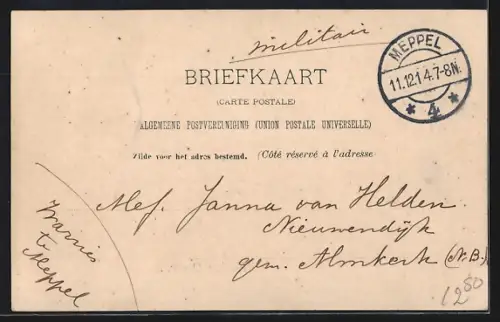 militair
MEPPEL
11.12.14.7-8N.
* 4 *
BRIEFKAART
(CARTE POSTALE)
ALGEMEENE POSTVEREENIGING (UNION POSTALE UNIVERSELLE)
Zijde voor het adres bestemd. (Côté réservé à l'adresse
Mej. Janna van Helden.
Nieuwendijk
gem. Almkerk (N.B.)
te
Meppel
1280